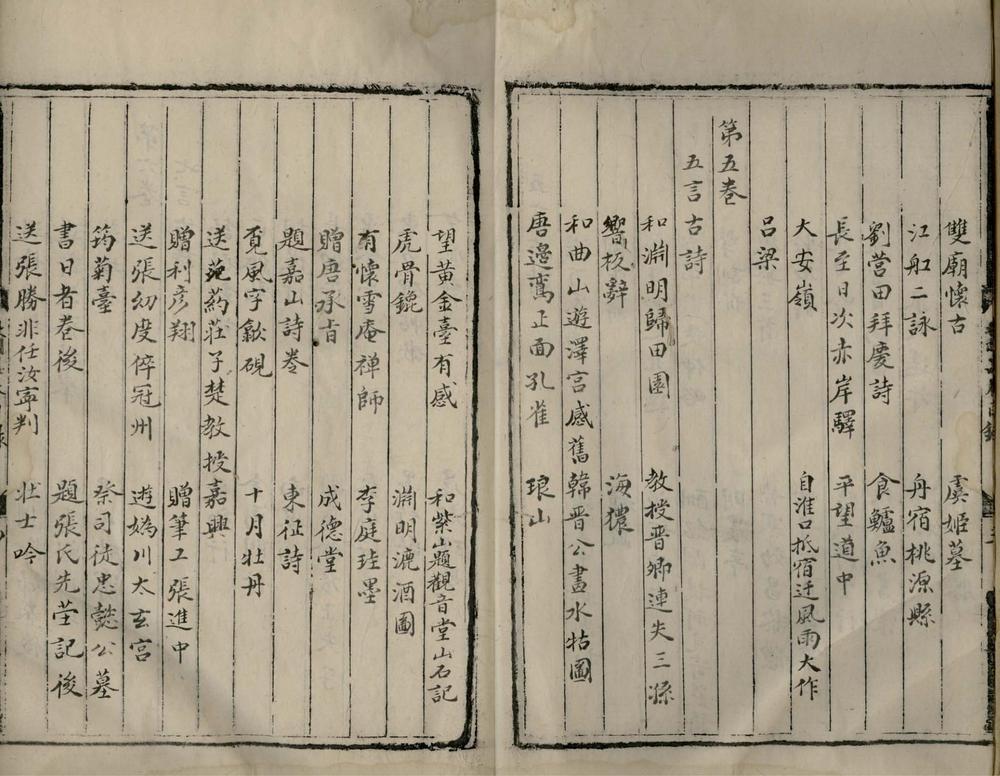 雙廟懷古　虞姬墓
江舡二詠　舟宿桃源縣
劉營田拜慶詩　食鱸魚
長至日次赤岸驛　平望道中
大安嶺　自淮口抵宿迁風雨大作
呂梁
第五卷
五言古詩
和淵明歸田園　教授晋卿連失三孫
響板辭　海獚
和曲山遊澤宮感舊　韓晋公畫水牯圖
唐邊鸞正面孔雀　琅山
望黃金臺有感　和紫山題觀音堂山石記
虎骨鎞　淵明漉酒圖
有懷雪庵禅師　李庭珪墨
贈唐承旨　成德堂
題嘉山詩卷　東征詩
覔風字歙硯　十月牡丹
送范葯莊子楚教授嘉興
贈利彦翔　贈筆工張進中
送張幼度倅冠州　遊媯川太玄宮
筠菊臺　祭司徒忠懿公墓
書日者卷後　題張氏先茔記後
送張勝非任汝寧判　壮士吟